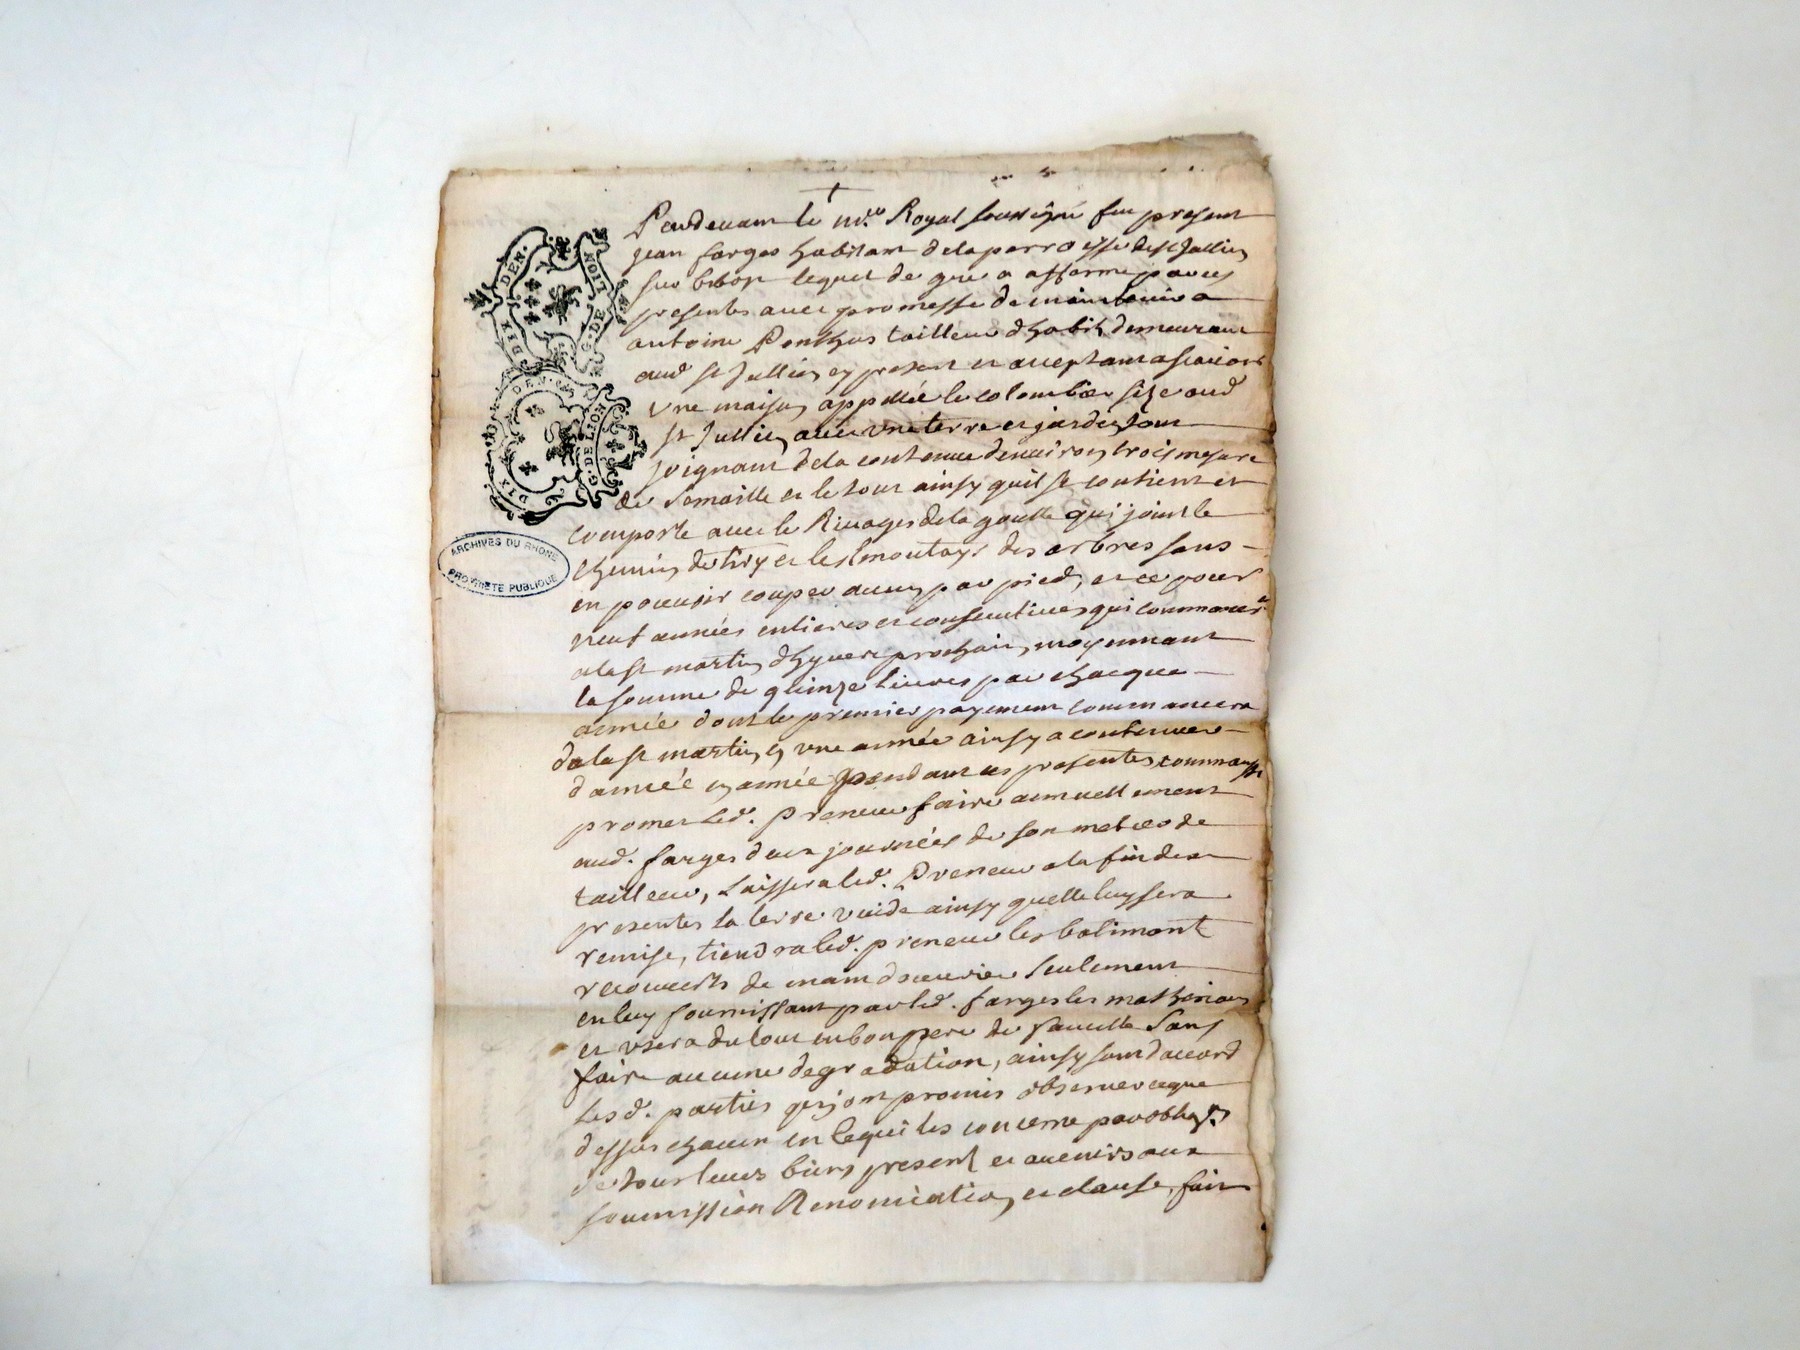 Pardevant le nre Royal soussigné fut present
jean farges habitant de la parroisse de st Jullien
sur bibos lequel de gre a afferme par ces
presentes avec promesse de maintenir a
antoine Ponthus tailleur dhabits demeurant
aud st Jullien present et acceptant ascavoir
une maison appellée le colombier size aud
st Jullien avec une terre et jardin tout
joignant de la contenue denviron trois mesure
de semaille et le tout ainsy quil se contient et
comporte avec le Rivages de la goutte qui joint le
chemin de et les emoutages des arbres sans
en pouvoir couper aucun par pied, et ce pour
neuf années entieres et consecutives qui commancer
a la st martin dhyvert prochain, moyennant
la somme de quinze livres par chacque
année dont le premier payement commancera
de la st martin en une année ainsy a continuer
d'année en année pendant ces presentes comme aussi
promet led. preneur faire annuellement
aud. farges deux journées de son metier de
tailleur, laissera led. Preneur a la fin des
presentes la terre vuide ainsy quelle luy sera
remise, tiendra led. preneur les batiment
recouverts de main doeuvre seulement
en luy fournissant par led. farges les matheriaux
et usera du tout en bon pere de famille sans
faire aucune degradation, ainsy sont d'accord
lesd. parties qui ont promis observer ce que
dessus chacun en ce qui les concerne par oblig.on
de tout leurs biens present et avenir aux
soumission Renonciation et clause, fait
DIX DEN.
G. DE LION
DIX DEN.
G. DE LION
ARCHIVES DU RHONE
PROPRIETE PUBLIQUE